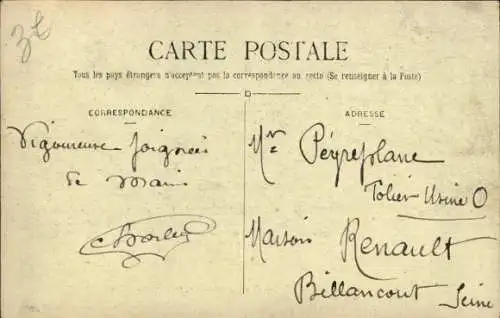 3t
CARTE POSTALE
Tous les pays étrangers n'acceptent pas la correspondance au recto (Se renseigner à la Poste)
CORRESPONDANCE
Vigoureuse poignées
de main
ADRESSE
Mr Peyreplane
Tolier Usine O
Maison Renault
Billancourt
Seine